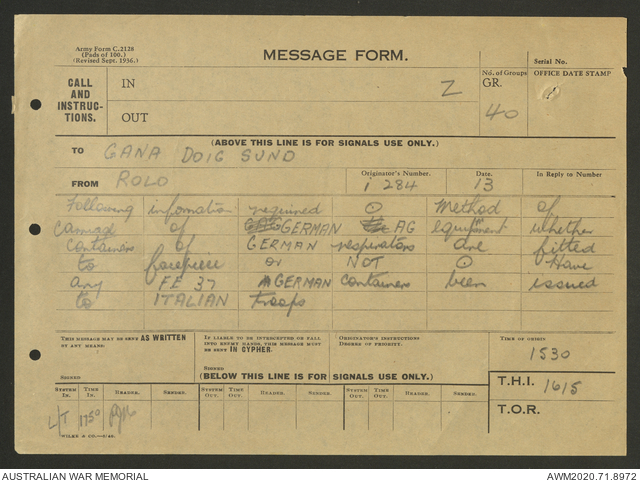 Army Form C.2128
(Pads of 100.)
(Revised Sept. 1936.)
MESSAGE FORM.
Serial No.
CALL AND INSTRUC-TIONS.
IN
OUT
Z
No. of Groups
GR.
40
OFFICE DATE STAMP
(ABOVE THIS LINE IS FOR SIGNALS USE ONLY.)
TO GANA DOIG SUNO
FROM ROLO
Originator's Number. i 284
Date. 13
In Reply to Number
Following information required ⊙ Method of
carriage of GERMAN AG equipment whether
containers of GERMAN respirators are fitted
to facepiece or NOT ⊙ Have
any FE 37 GERMAN containers been issued
to ITALIAN troops
THIS MESSAGE MAY BE SENT AS WRITTEN BY ANY MEANS.
SIGNED
IF LIABLE TO BE INTERCEPTED OR FALL INTO ENEMY HANDS, THIS MESSAGE MUST BE SENT IN CYPHER.
SIGNED
ORIGINATOR'S INSTRUCTIONS
DEGREE OF PRIORITY.
TIME OF ORIGIN
1530
(BELOW THIS LINE IS FOR SIGNALS USE ONLY.)
T.H.I. 1615
T.O.R.
SYSTEM IN. TIME IN. READER. SENDER. SYSTEM OUT. TIME OUT. READER. SENDER. SYSTEM OUT. TIME OUT. READER. SENDER.
L/T 1750
AUSTRALIAN WAR MEMORIAL
AWM2020.71.8972